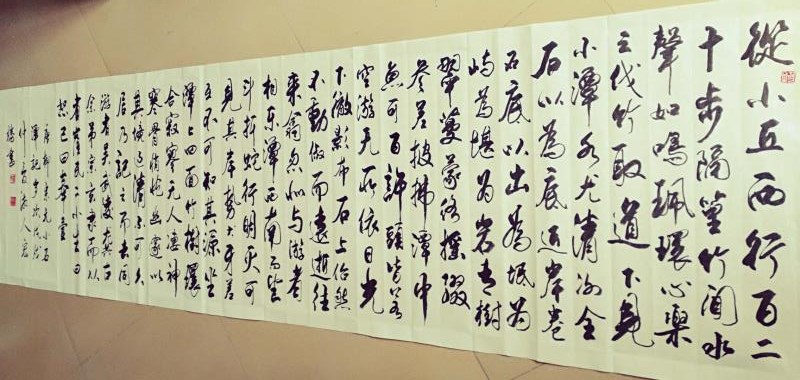 從小丘西行百二
十步隔篁竹聞水
聲如鳴珮環心樂
之伐竹取道下見
小潭水尤清冽全
石以為底近岸卷
石底以出為坻為
嶼為堪為岩青樹
翠蔓蒙絡搖綴
參差披拂潭中
魚可百許頭皆若
空游无所依日光
下徹影布石上佁然
不動俶而遠逝往
來翕忽似与游者
相樂潭西南而望
斗折蛇行明灭可
見其岸勢犬牙差
互不可知其源坐
潭上四面竹樹環
合寂寥无人凄神
寒骨悄愴幽邃以
其境過清不可久
居乃記之而去同
游者吴武陵龔古
余弟宗玄隸而從
者崔氏二小生曰
恕己曰奉壹
宗元小石
潭記